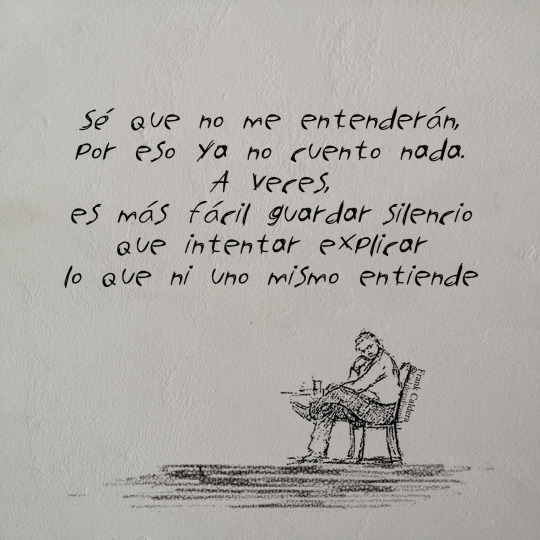 Sé que no me entenderán,
Por eso ya no cuento nada.
A veces,
es más fácil guardar silencio
que intentar explicar
lo que ni uno mismo entiende
Frank Caldera